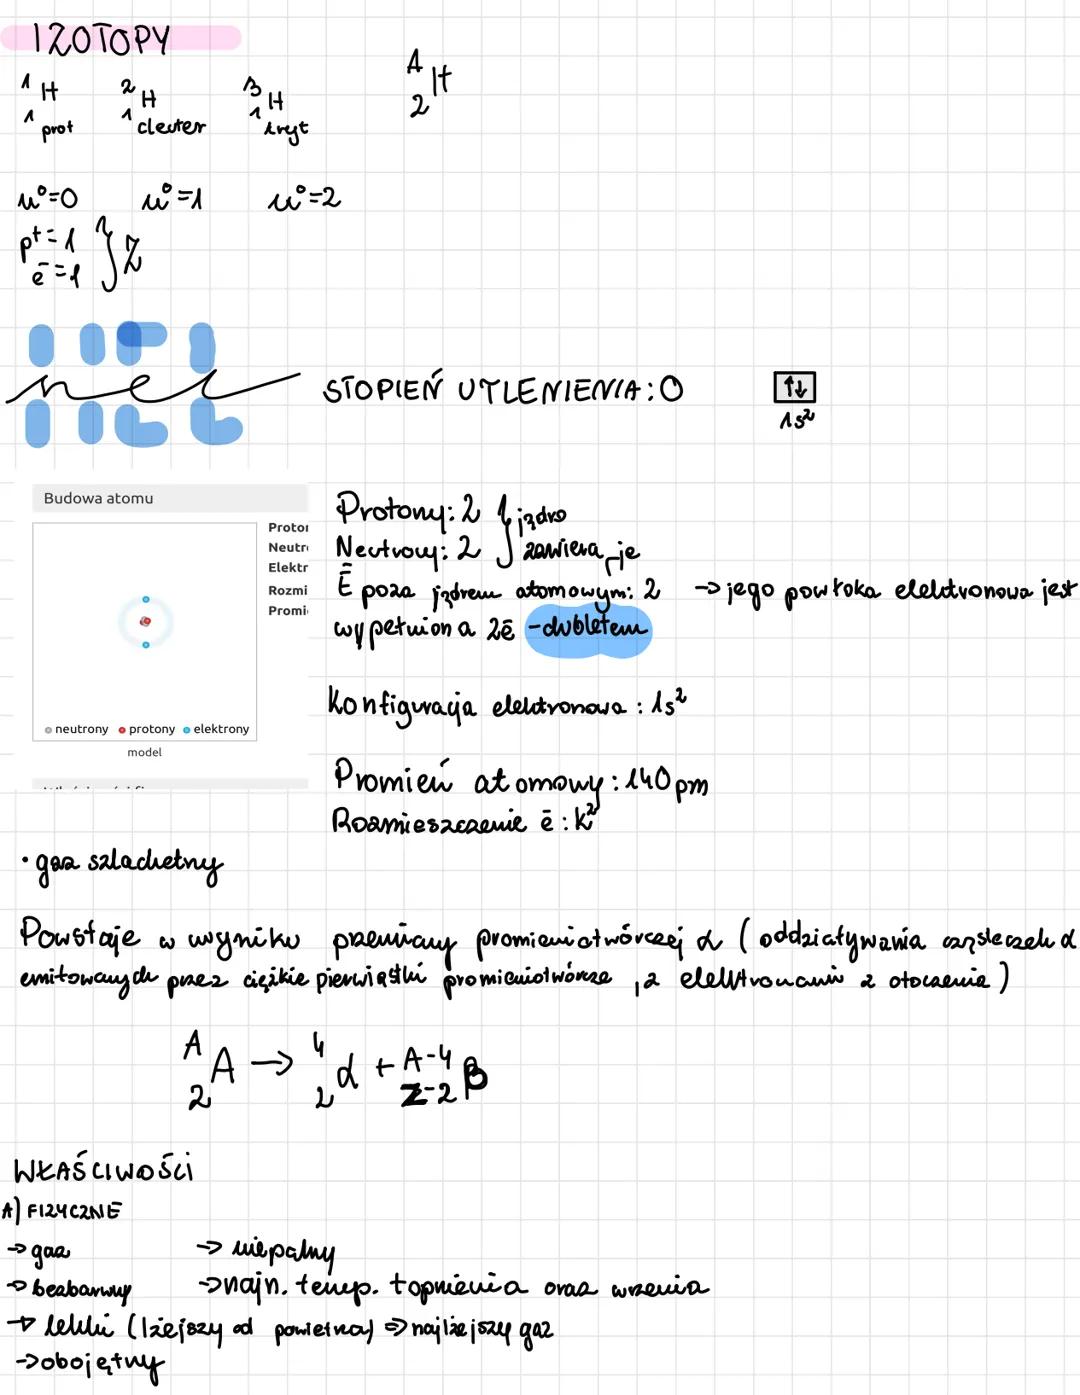 IZOTOPY
¹₁H prot ²₁H deuter ³₁H tryt ᴬ₂H
n⁰=0 n⁰=1 n⁰=2
p⁺=1
ē=1 } Z
hel STOPIEŃ UTLENIENIA: 0 ↑↓
1s²
Budowa atomu
Proto
Neutr
Elektr
Rozmi
Promi
neutrony protony elektrony
model
Protony: 2 } jądro
Neutrony: 2 } zawiera je
Ē poza jądrem atomowym: 2 → jego powłoka elektronowa jest
wypełniona 2ē - dubletem
Konfiguracja elektronowa: 1s²
Promień atomowy: 140 pm
Rozmieszczenie ē: K²
• gaz szlachetny
Powstaje w wyniku przemiany promieniotwórczej α (oddziaływania cząsteczek α
emitowanych przez ciężkie pierwiastki promieniotwórcze, z elektronami z otoczenia)
ᴬ₂A → ⁴₂α + ᴬ⁻⁴Z-2 B
WŁAŚCIWOŚCI
A) FIZYCZNE
→ gaz → niepalny
→ bezbarwny → najn. temp. topnienia oraz wrzenia
→ lekki (lżejszy od powietrza) ⇒ najlżejszy gaz
→ obojętny